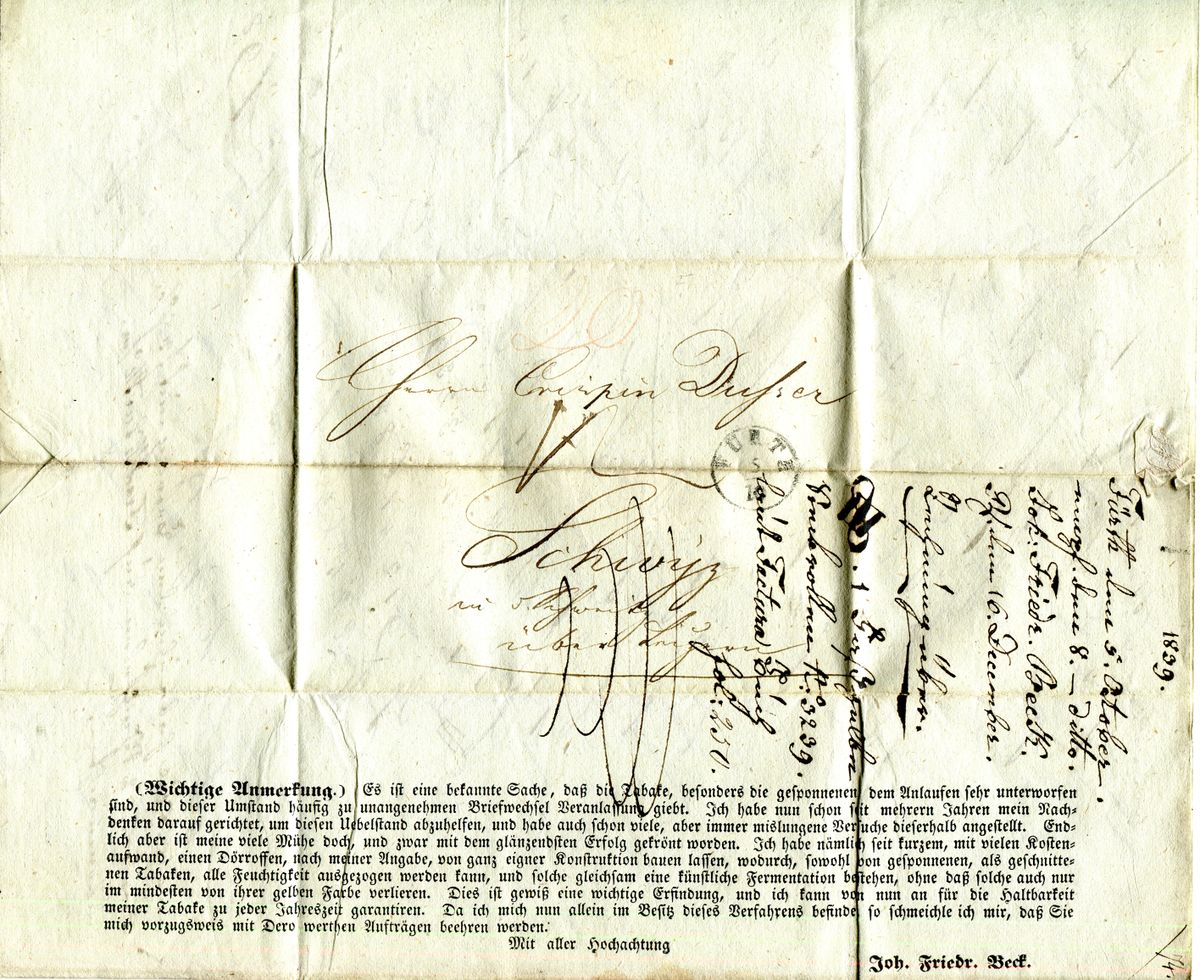 Herrn Crispin Dusser
Schwÿz
in d. Schweitz
über Luzern
FÜRTH
1839.
Fürth den 5. October.
den 8. – ditto.
Joh: Friedr. Beck.
16. December.
über.
No. 3239.
laut Factura Buch
fol: 250.
(Wichtige Anmerkung.) Es ist eine bekannte Sache, daß die Tabake, besonders die gesponnenen, dem Anlaufen sehr unterworfen
sind, und dieser Umstand häufig zu unangenehmen Briefwechsel Veranlassung giebt. Ich habe nun schon seit mehrern Jahren mein Nach-
denken darauf gerichtet, um diesen Uebelstand abzuhelfen, und habe auch schon viele, aber immer mislungene Versuche dieserhalb angestellt. End-
lich aber ist meine viele Mühe doch, und zwar mit dem glänzendsten Erfolg gekrönt worden. Ich habe nämlich seit kurzem, mit vielen Kosten-
aufwand, einen Dörroffen, nach meiner Angabe, von ganz eigner Konstruktion bauen lassen, wodurch, sowohl von gesponnenen, als geschnitte-
nen Tabaken, alle Feuchtigkeit ausgezogen werden kann, und solche gleichsam eine künstliche Fermentation bestehen, ohne daß solche auch nur
im mindesten von ihrer gelben Farbe verlieren. Dies ist gewiß eine wichtige Erfindung, und ich kann von nun an für die Haltbarkeit
meiner Tabake zu jeder Jahreszeit garantiren. Da ich mich nun allein im Besitz dieses Verfahrens befinde, so schmeichle ich mir, daß Sie
mich vorzugsweis mit Dero werthen Aufträgen beehren werden.
Mit aller Hochachtung
Joh. Friedr. Beck.